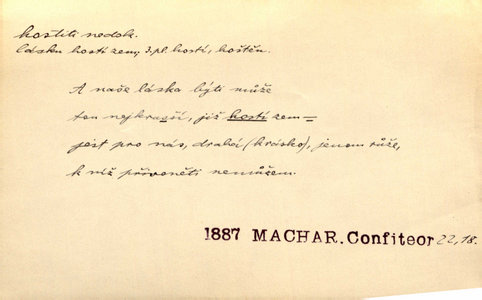 hostiti nedok.
lásku hostí zem, 3. pl. hostí, hoštěn.
A naše láska býti může
ten nejkrasší, již hostí zem =
jest pro nás, drahá (krásko), jenom růže,
k níž přivoněti nemůžem.
1887 MACHAR. Confiteor 22, 18.